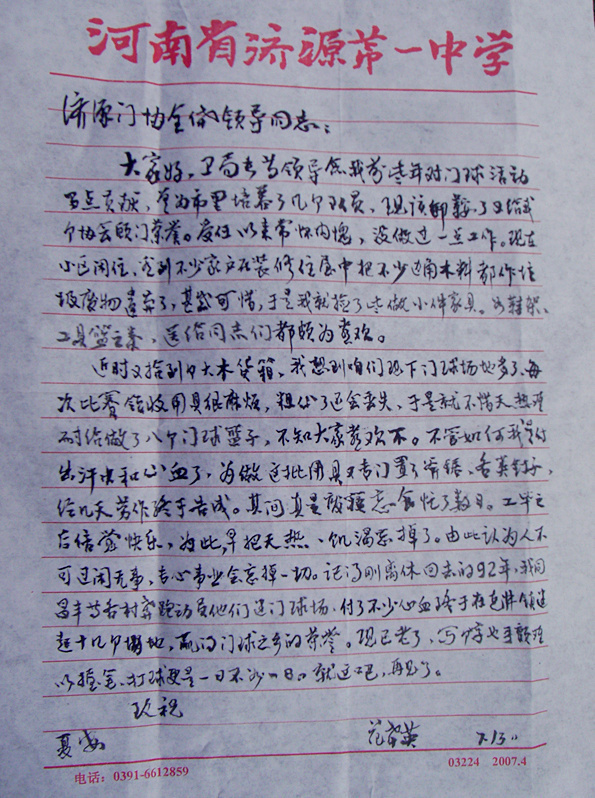 河南省济源第一中学
济源门协全体领导同志：
大家好，卫局长等领导念我前些年对门球活动
有点贡献，曾为市里培养了几个队员，现该卸鞍了又给我
个协会顾门荣誉。应任以来常怀内愧，没做过一点工作。现在
小区闲住，它到不少家户在装修住屋中把不少边角木料都作垃
圾废物遗弃了，甚觉可惜，于是我就捡了些做小件家具。如鞋架、
工具篮之类，送给同志们都颇为喜欢。
近时又捡到个大木货箱，我想到咱们现下门球场地多了，每
次比赛领收用具很麻烦，粗心了还会丢失，于是就不惜天热难
耐给做了八个门球篮子，不知大家喜欢不。不管如何我是付
出汗水和心血了，为做这批用具又专门置了锯、各类钉子，
经几天劳作终于告成。其间真是散疆忘食忙了数日。工毕之
后倍觉快乐，为此，早把天热、饥渴忘掉了。由此认为人不
可过闲无事，专心事业会忘掉一切。记得刚离休回去的92年，我同
昌丰等各村奔跑动员他们建门球场，付了不少心血终于在克井镇建
起十几个场地，赢得门球之乡的荣誉。现已老了，写个字也手颤难
以握笔，打球更是一日不如一日。就这吧，再见了。
致祝
夏安
范英 7.13日
电话：0391-6612859
03224 2007.4